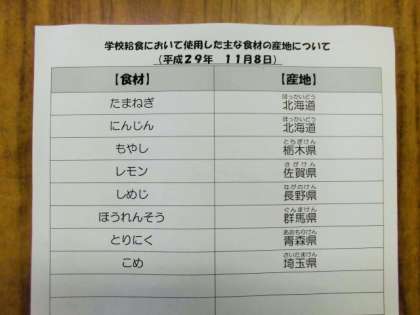 学校給食において使用した主な食材の産地について
(平成29年 11月8日)
【食材】 【産地】
たまねぎ 北海道 ほっかいどう
にんじん 北海道 ほっかいどう
もやし 栃木県 とちぎけん
レモン 佐賀県 さがけん
しめじ 長野県 ながのけん
ほうれんそう 群馬県 ぐんまけん
とりにく 青森県 あおもりけん
こめ 埼玉県 さいたまけん